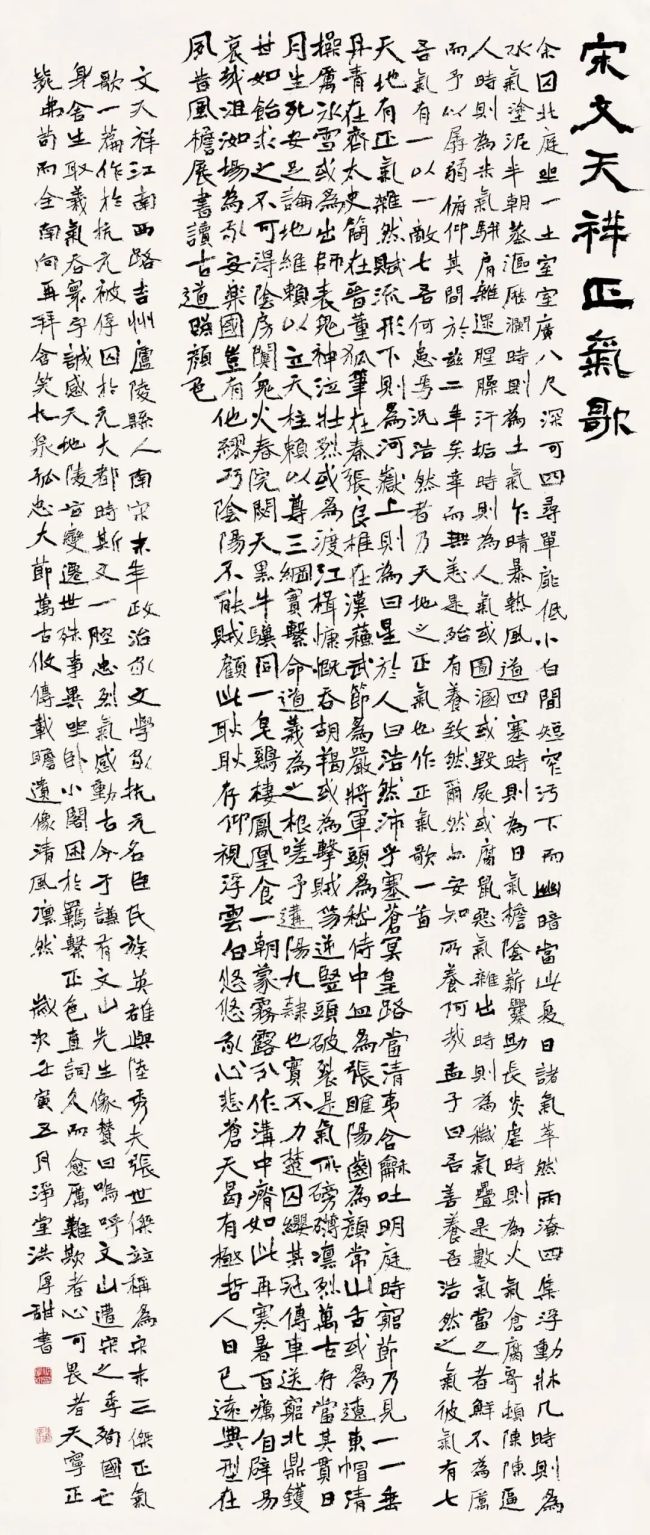 宋文天祥正氣歌
余囚北庭坐一土室室廣八尺深可四尋單扉低小白間短窄汚下而幽暗當此夏日諸氣萃然雨潦四集浮動牀几時則為
水氣塗泥半朝蒸漚歷瀾時則為土氣乍晴暴熱風道四塞時則為日氣檐陰薪爨助長炎虐時則為火氣倉腐寄頓陳陳逼
人時則為米氣駢肩雜遝腥臊汗垢時則為人氣或圊溷或毀屍或腐鼠惡氣雜出時則為穢氣疊是數氣當之者鮮不為厲
而予以孱弱俯仰其間於兹二年矣幸而無恙是殆有養致然爾然亦安知所養何哉孟子曰吾善養吾浩然之氣彼氣有七
吾氣有一以一敵七吾何患焉況浩然者乃天地之正氣也作正氣歌一首
天地有正氣雜然賦流形下則為河嶽上則為日星於人曰浩然沛乎塞蒼冥皇路當清夷含龢吐明庭時窮節乃見一一垂
丹青在齊太史簡在晉董狐筆在秦張良椎在漢蘇武節為嚴將軍頭為嵇侍中血為張睢陽齒為顏常山舌或為遼東帽清
操厲冰雪或為出師表鬼神泣壯烈或為渡江楫慷慨吞胡羯或為擊賊笏逆豎頭破裂是氣所磅礴凜烈萬古存當其貫日
月生死安足論地維賴以立天柱賴以尊三綱實繫命道義為之根嗟予遘陽九隸也實不力楚囚纓其冠傳車送窮北鼎鑊
甘如飴求之不可得陰房闃鬼火春院閟天黑牛驥同一皂鷄棲鳳凰食一朝蒙霧露分作溝中瘠如此再寒暑百癘自辟易
哀哉沮洳場為我安樂國豈有他繆巧陰陽不能賊顧此耿耿存仰視浮雲白悠悠我心悲蒼天曷有極哲人日已遠典型在
夙昔風檐展書讀古道照顏色
文天祥江南西路吉州廬陵縣人南宋末年政治家文學家抗元名臣民族英雄與陸秀夫張世傑並稱為宋末三傑正氣
歌一篇作於抗元被俘囚於元大都時斯文一腔忠烈氣感動古今于謙有文山先生像贊曰嗚呼文山遭宋之季殉國亡
身舍生取義氣吞寰宇誠感天地陵谷變遷世殊事異坐卧小閣困於羈繫正色直詞久而愈厲難欺者心可畏者天寧正
斃弗苟而全南向再拜含笑九泉孤忠大節萬古攸傳載瞻遺像清風凜然 歲次壬寅五月淨堂洪厚甜書